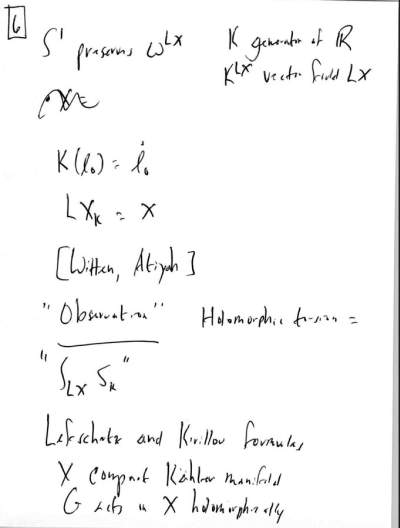 6
S¹ preserves ω^{LX} K generator of R
K^{LX} vector field LX
K(l₀) = l̇₀
LX_K = X
[Witten, Atiyah]
"Observation" Holomorphic torsion =
"∫_{LX} S_K"
Lefschetz and Kirillov formulas
X compact Kähler manifold
G acts on X holomorphically